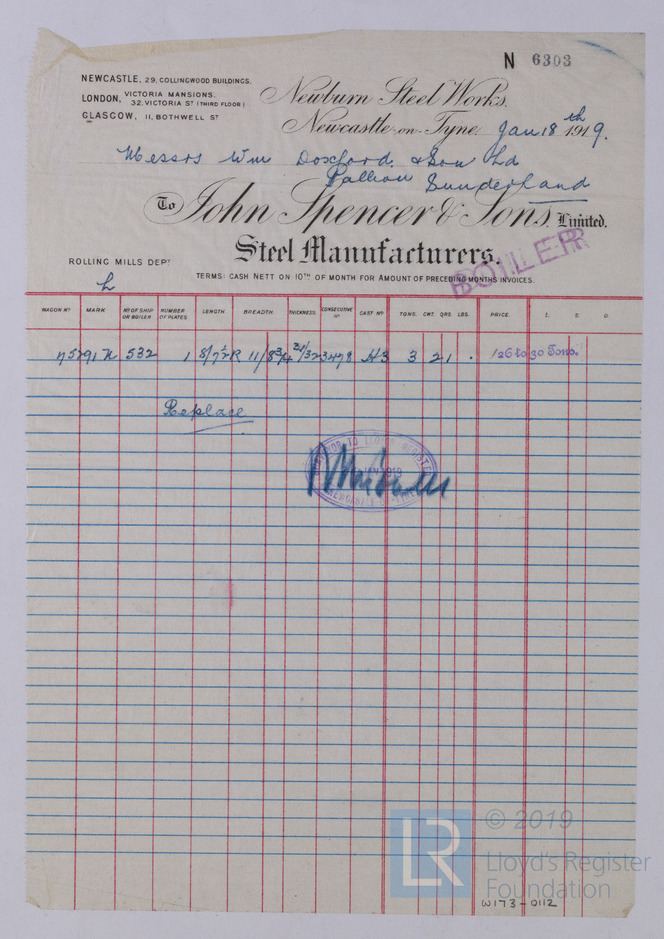 N 6303
NEWCASTLE, 29, COLLINGWOOD BUILDINGS.
LONDON, VICTORIA MANSIONS, 32, VICTORIA ST (THIRD FLOOR)
GLASGOW, 11, BOTHWELL ST
Newburn Steel Works,
Newcastle-on-Tyne, Jan 18th 1919.
Messrs Wm Doxford & Son Ld
Pallion Sunderland
To John Spencer & Sons, Limited,
Steel Manufacturers.
BOILER
ROLLING MILLS DEPT
TERMS: CASH NETT ON 10TH OF MONTH FOR AMOUNT OF PRECEDING MONTHS INVOICES.
WAGON NO MARK NO OF SHIP OR BOILER NUMBER OF PLATES LENGTH BREADTH THICKNESS CONSECUTIVE NO CAST NO TONS. CWT. QRS. LBS. PRICE. £. S. D.
532 1 8/7½ R 11/8¾ 3 2 1 . 26 to 30 Tons.
Replace
SURVEYOR TO LLOYD'S REGISTER
JAN 1919
NEWCASTLE-ON-TYNE
LR © 2019
Lloyd's Register
Foundation
W173-0112